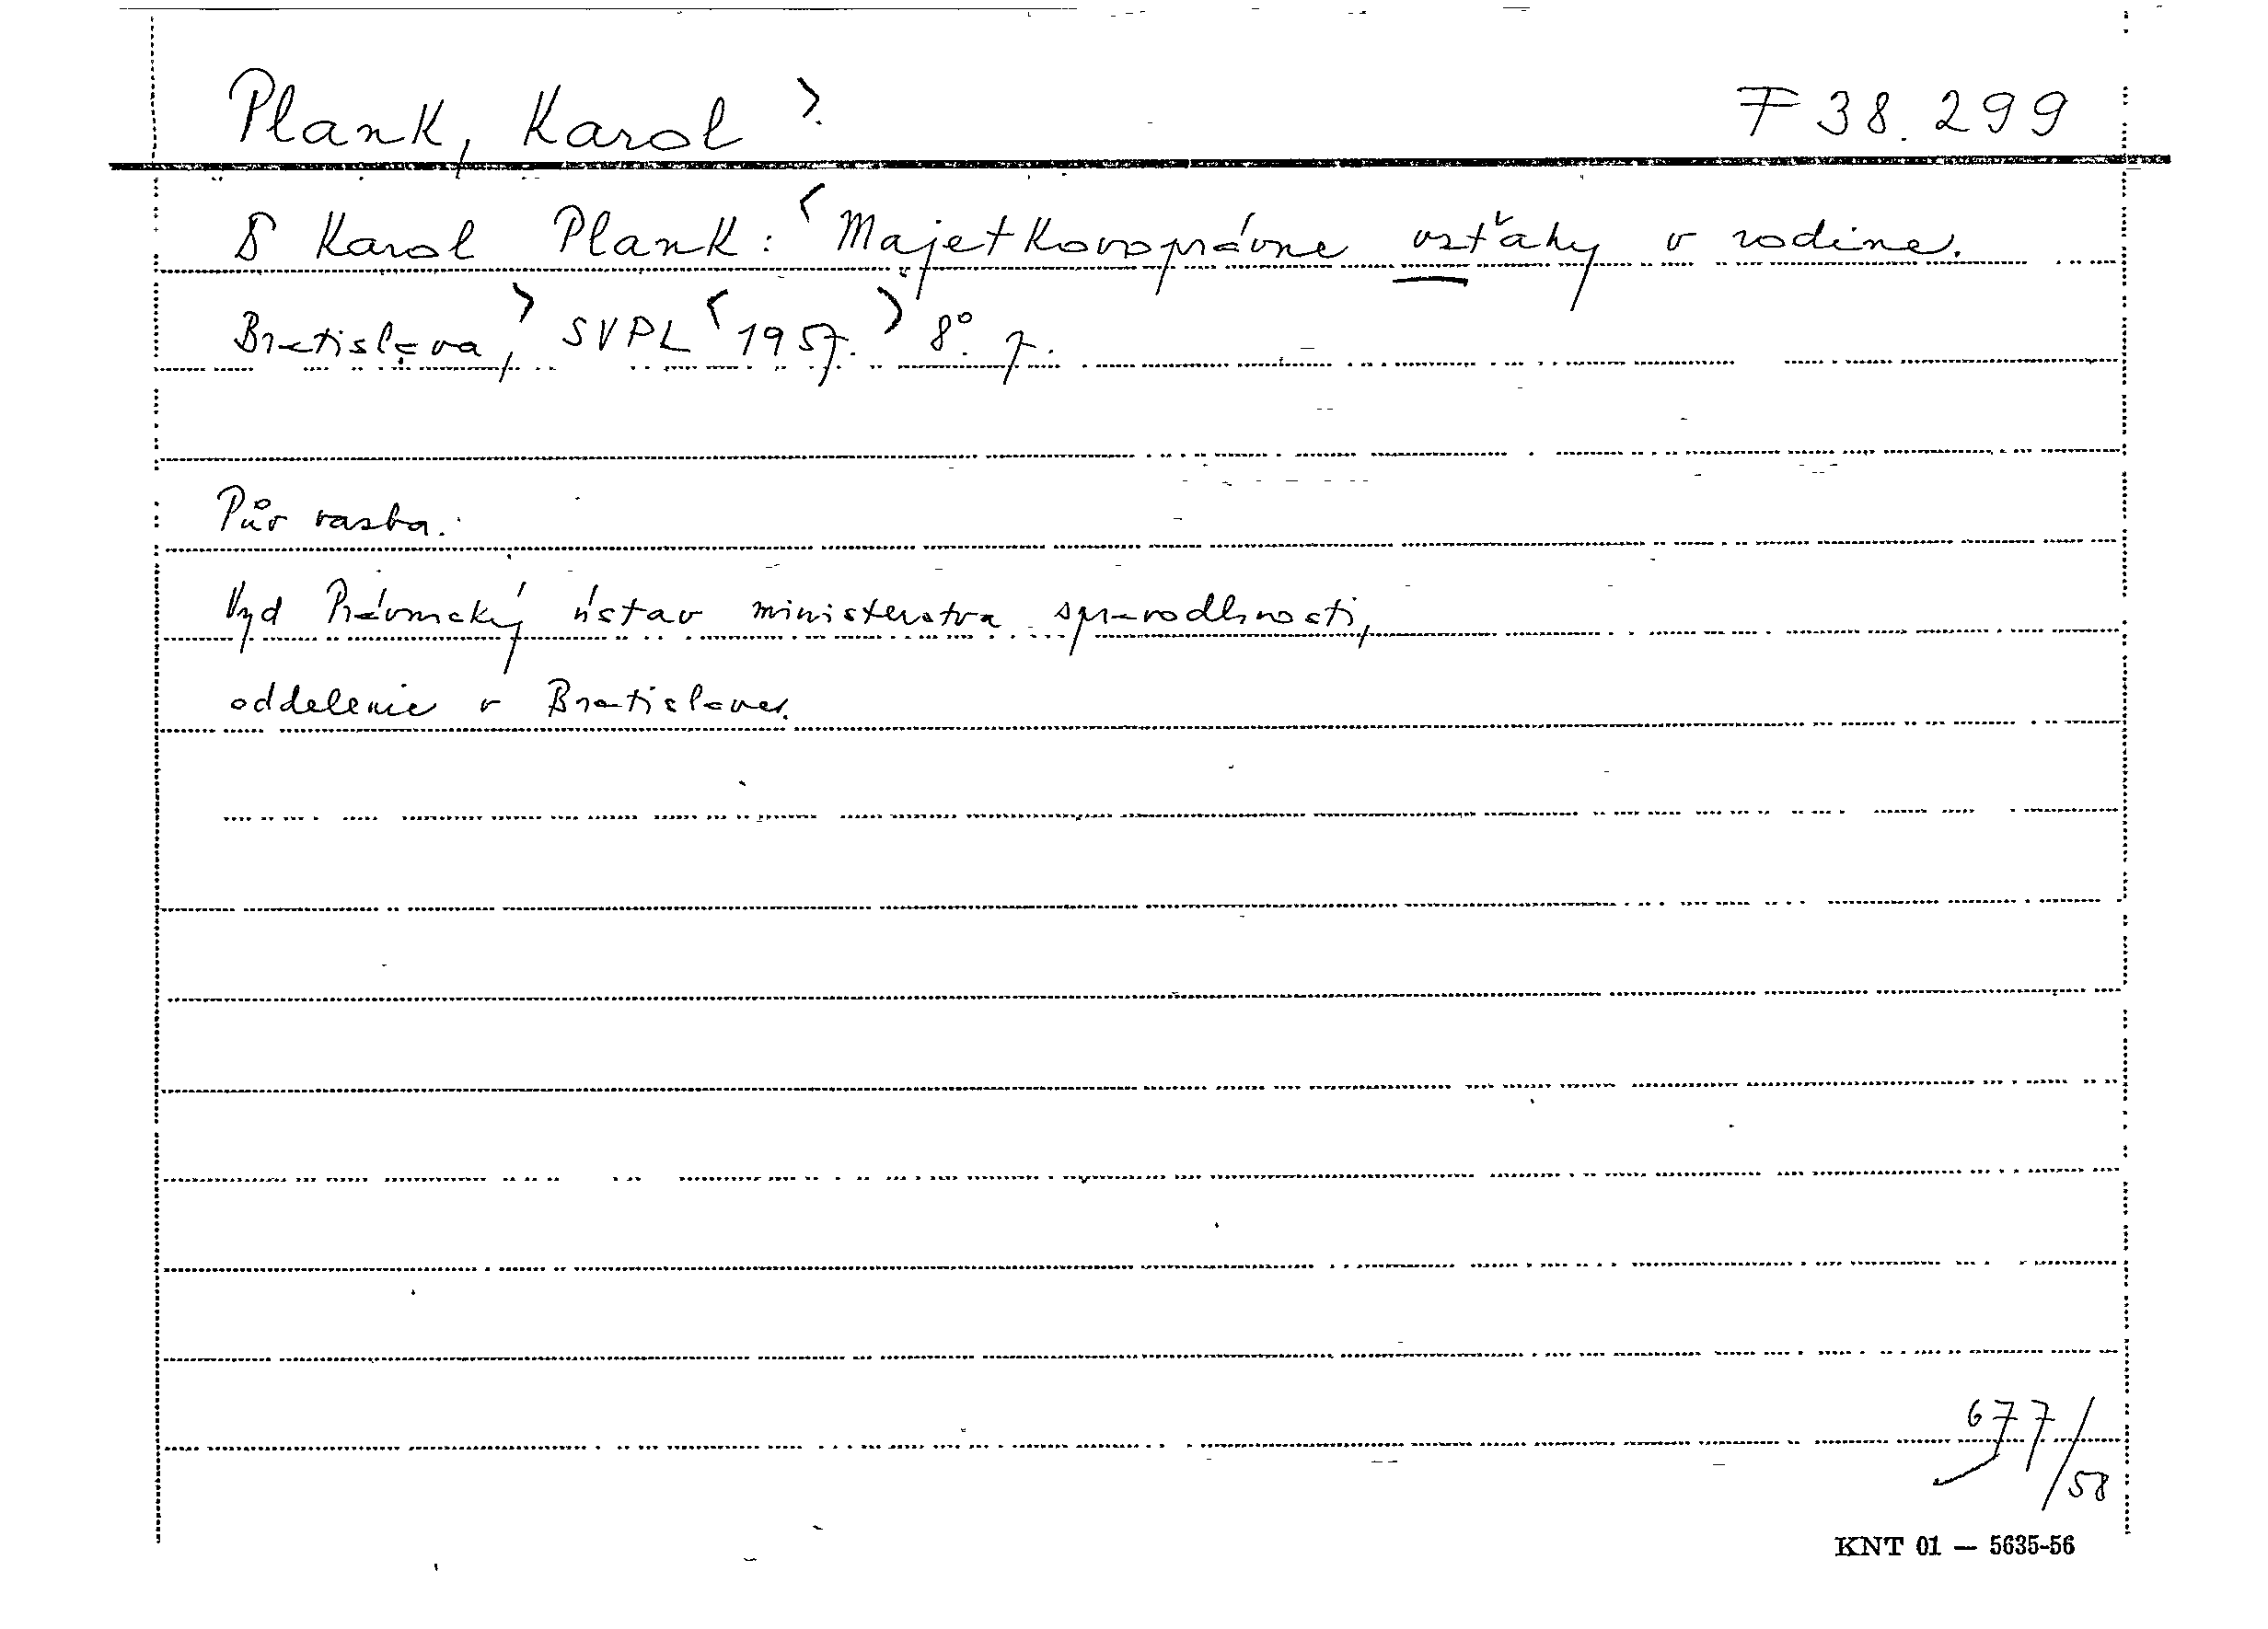 Plank, Karol > F 38.299
§ Karol Plank: < Majetkovoprávne vzťahy v rodine.
Bratislava, > SVPL < 1957. > 8°. 7.
Pův vazba.
Vyd Právnický ústav ministerstva spravodlnosti,
oddelenie v Bratislave.
677/58
KNT 01 — 5635-56